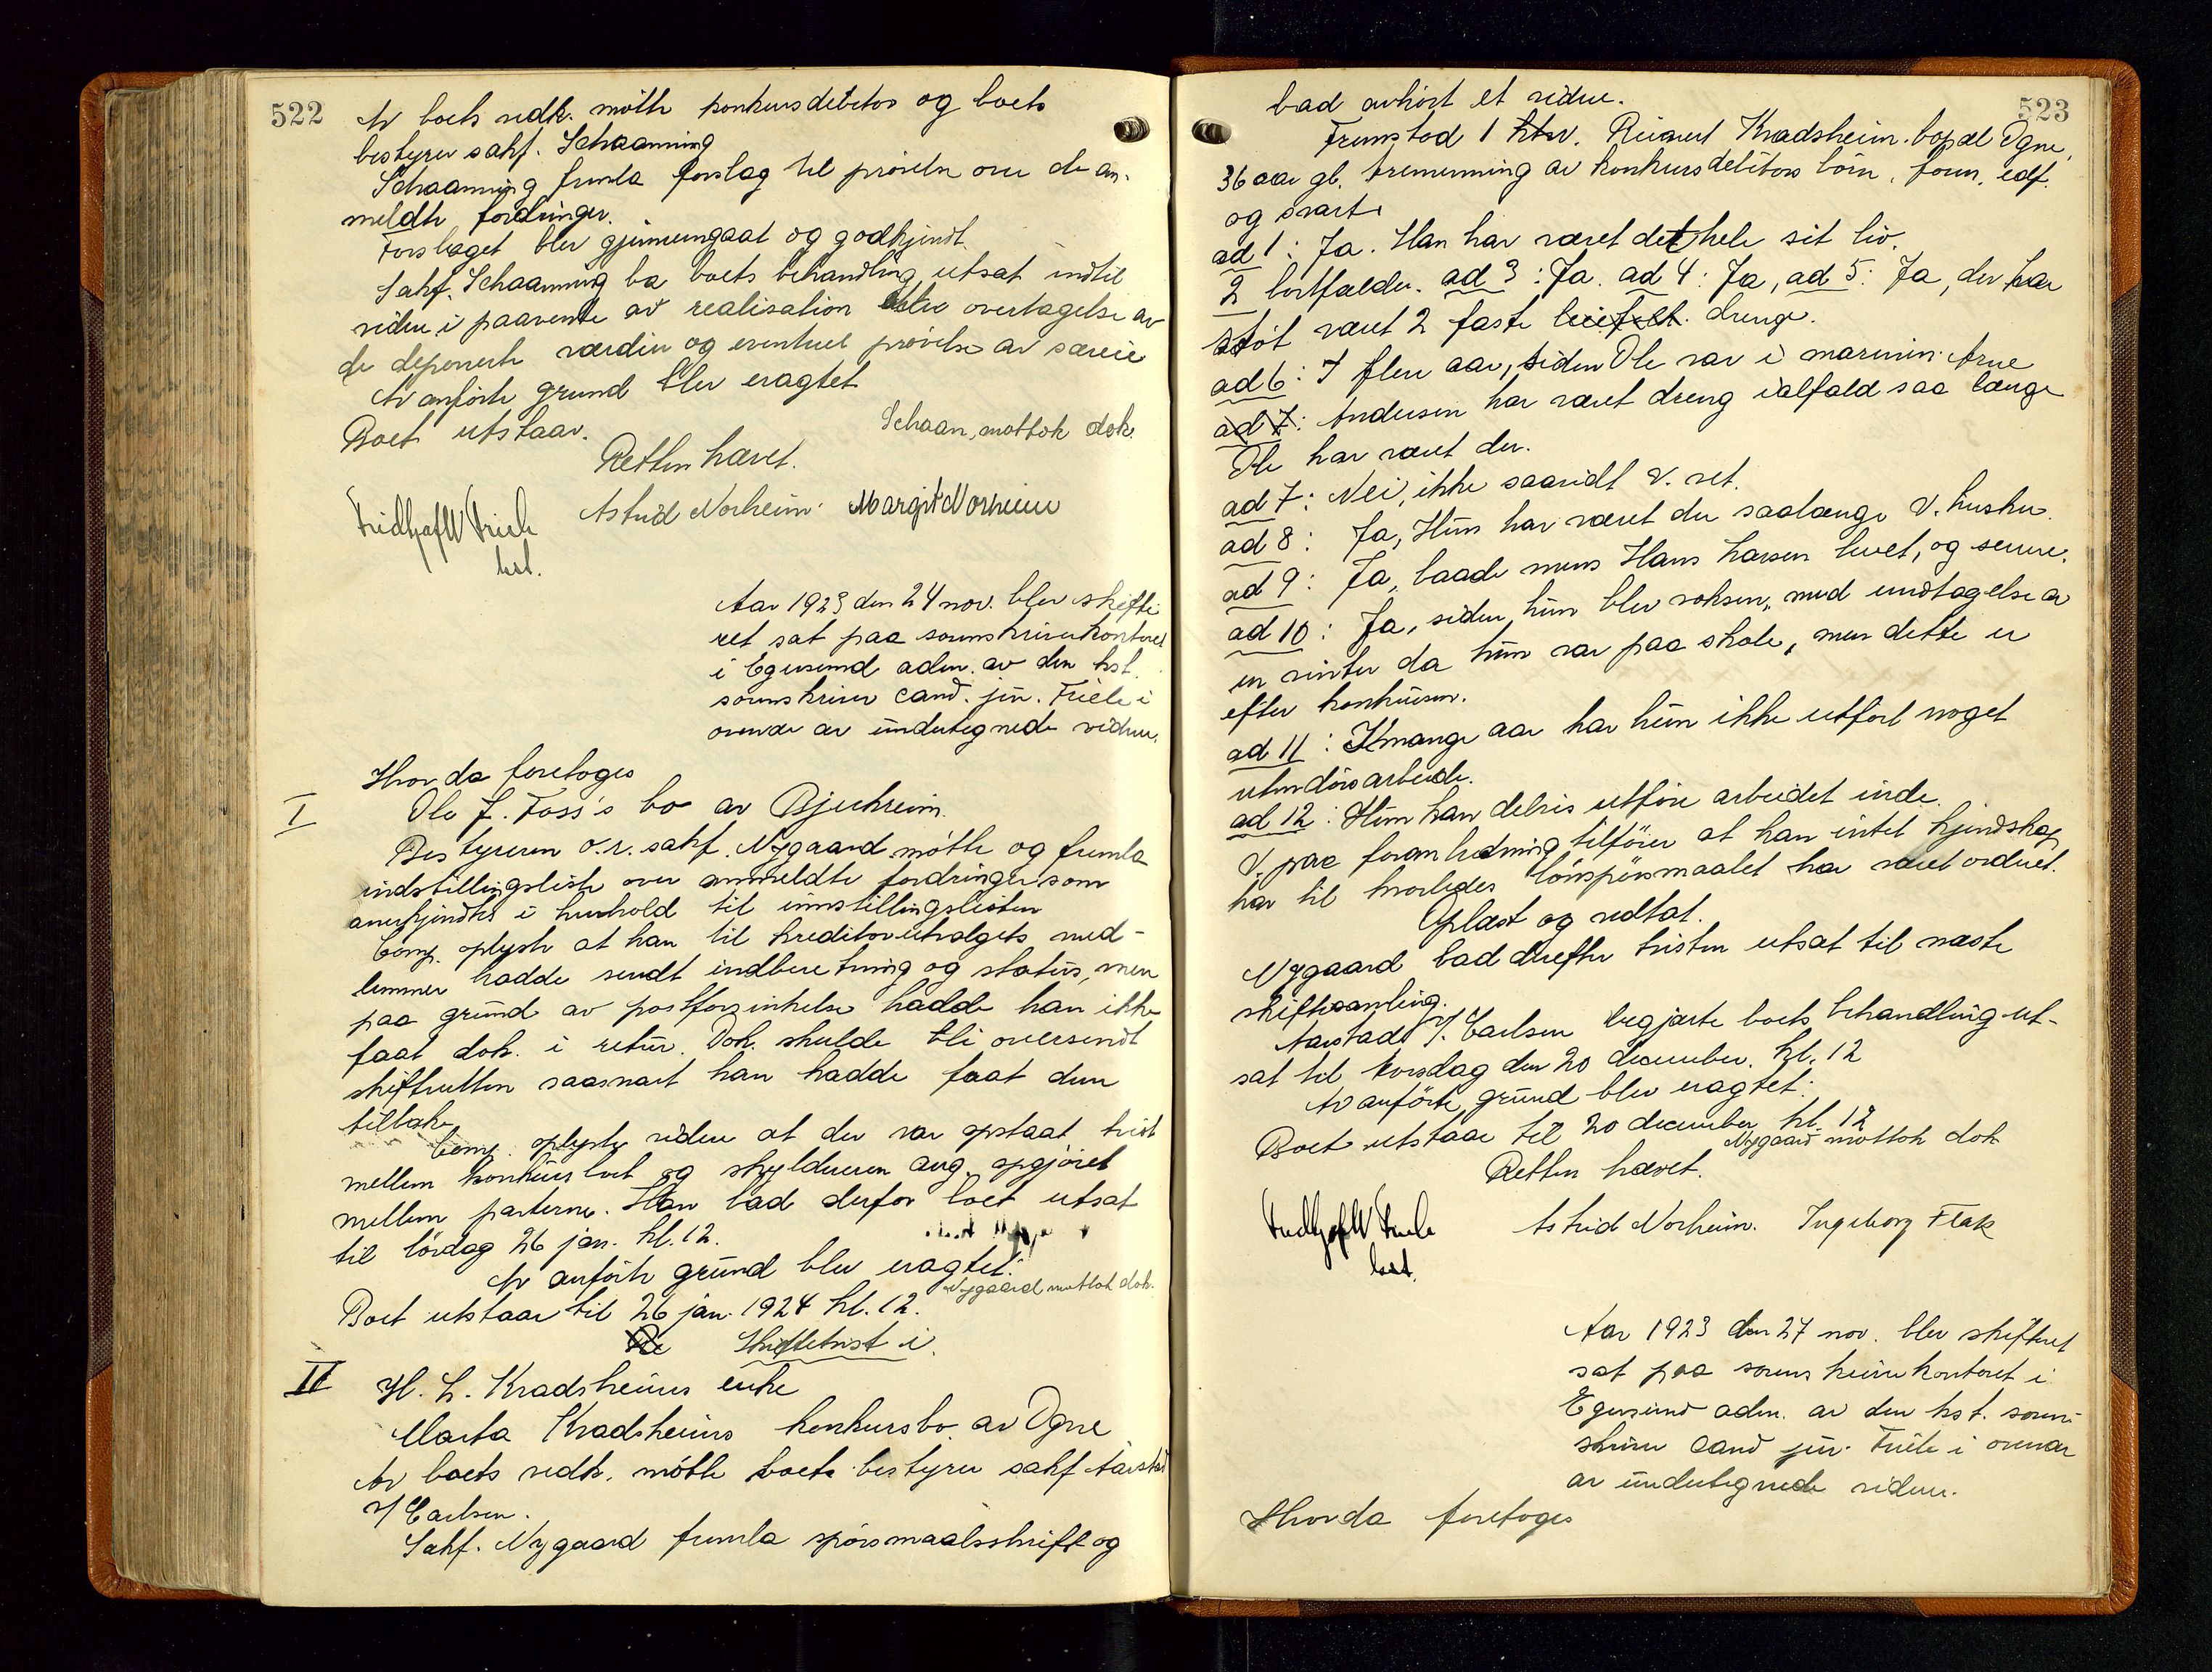 522
Av boets vedk. mötte konkursdebitor og boets
bestyrer sakf. Schaanning
Schaanning fremla forslag til prövelse over de an-
meldte fordringer.
Forslaget blev gjennemgaat og godkjendt.
Sakf. Schaanning ba boets behandling utsat indtil
videre i paavente av realisation eller overtagelse av
de deponerte værdier og eventuel prövelse av særeie
Av anförte grund blev eragtet
Boet utstaar.
Schaan. mottok dok.
Retten hævet.
Fridthjof W Friele
kst.
Astrid Norheim. Margit Norheim
Aar 1923 den 24 nov. blev skifte-
ret sat paa sorenskriverkontoret
i Egersund adm. av den kst.
sorenskriver cand. jur. Friele i
overvær av undertegnede vidner.
Hvor da foretoges
I
Ole J. Foss's bo av Bjerkreim.
Bestyreren o.r. sakf. Nygaard mötte og fremla
indstillingsliste over anmeldte fordringer som
anerkjendtes i henhold til innstillingslisten
Comp. oplyste at han til kreditorutvalgets med-
lemmer hadde sendt indberetning og status, men
paa grund av postforsinkelse hadde han ikke
faat dok. i retur. Dok. skulde bli oversendt
skifteretten saasnart han hadde faat dem
tilbake
Comp. oplyste videre at der var opstaat tvist
mellem konkursboet og skyldneren ang. opgjöret
mellem parterne. Han bad derfor boet utsat
til lördag 26 jan. kl. 12.
Av anförte grund blev eragtet:
Nygaard mottok dok.
Boet utstaar til 26 jan. 1924 kl. 12.
Re Skiftetvist i
II
H. L. Kvadsheims enke
Marta Kvadsheims konkursbo av Ogne
Av boets vedk. mötte boets bestyrer sakf Aarstad
v/ Carlsen.
Sakf. Nygaard fremla spörsmaalsskrift og
523
bad avhört et vidne.
Fremstod 1 Reinert Kvadsheim. bopæl Ogne,
36 aar gl. tremenning av konkursdebitors börn, form. edf.
og svarte
ad 1: Ja. Han har været der hele sit liv.
2 bortfalder. ad 3: Ja. ad 4: Ja, ad 5: Ja, der har
stöt været 2 faste drenge.
ad 6: I flere aar, siden Ole var i marinen. Arne
ad 7: Andersen har været dreng ialfald saa længe
Ole har været der.
ad 7: Nei, ikke saavidt v. vet.
ad 8: Ja, Hun har været der saalænge v. husker.
ad 9: Ja, baade mens Hans Larsen levet, og senere.
ad 10: Ja, siden hun blev voksen, med undtagelse av
en vinter da hun var paa skole, men dette er
efter konkursen.
ad 11: I mange aar har hun ikke utfört noget
utendörsarbeide.
ad 12: Hun kan delvis utföre arbeidet inde.
V. paa foranledning tilföier at han intet kjendskap
har til hvorledes lönspörsmaalet har været ordnet.
Oplæst og vedtat.
Nygaard bad derefter tvisten utsat til næste
skiftesamling.
Aarstad v/ Carlsen begjærte boets behandling ut-
sat til torsdag den 20 december. kl. 12
Av anförte grund blev eragtet:
Boet utstaar til 20 december kl. 12
Nygaard mottok dok
Retten hævet.
Fridthjof W Friele
kst.
Astrid Norheim. Ingeborg Flak
Aar 1923 den 27 nov. blev skifteret
sat paa sorenskriverkontoret i
Egersund adm. av den kst. soren-
skriver cand jur. Friele i overvær
av undertegnede vidner.
Hvor da foretoges